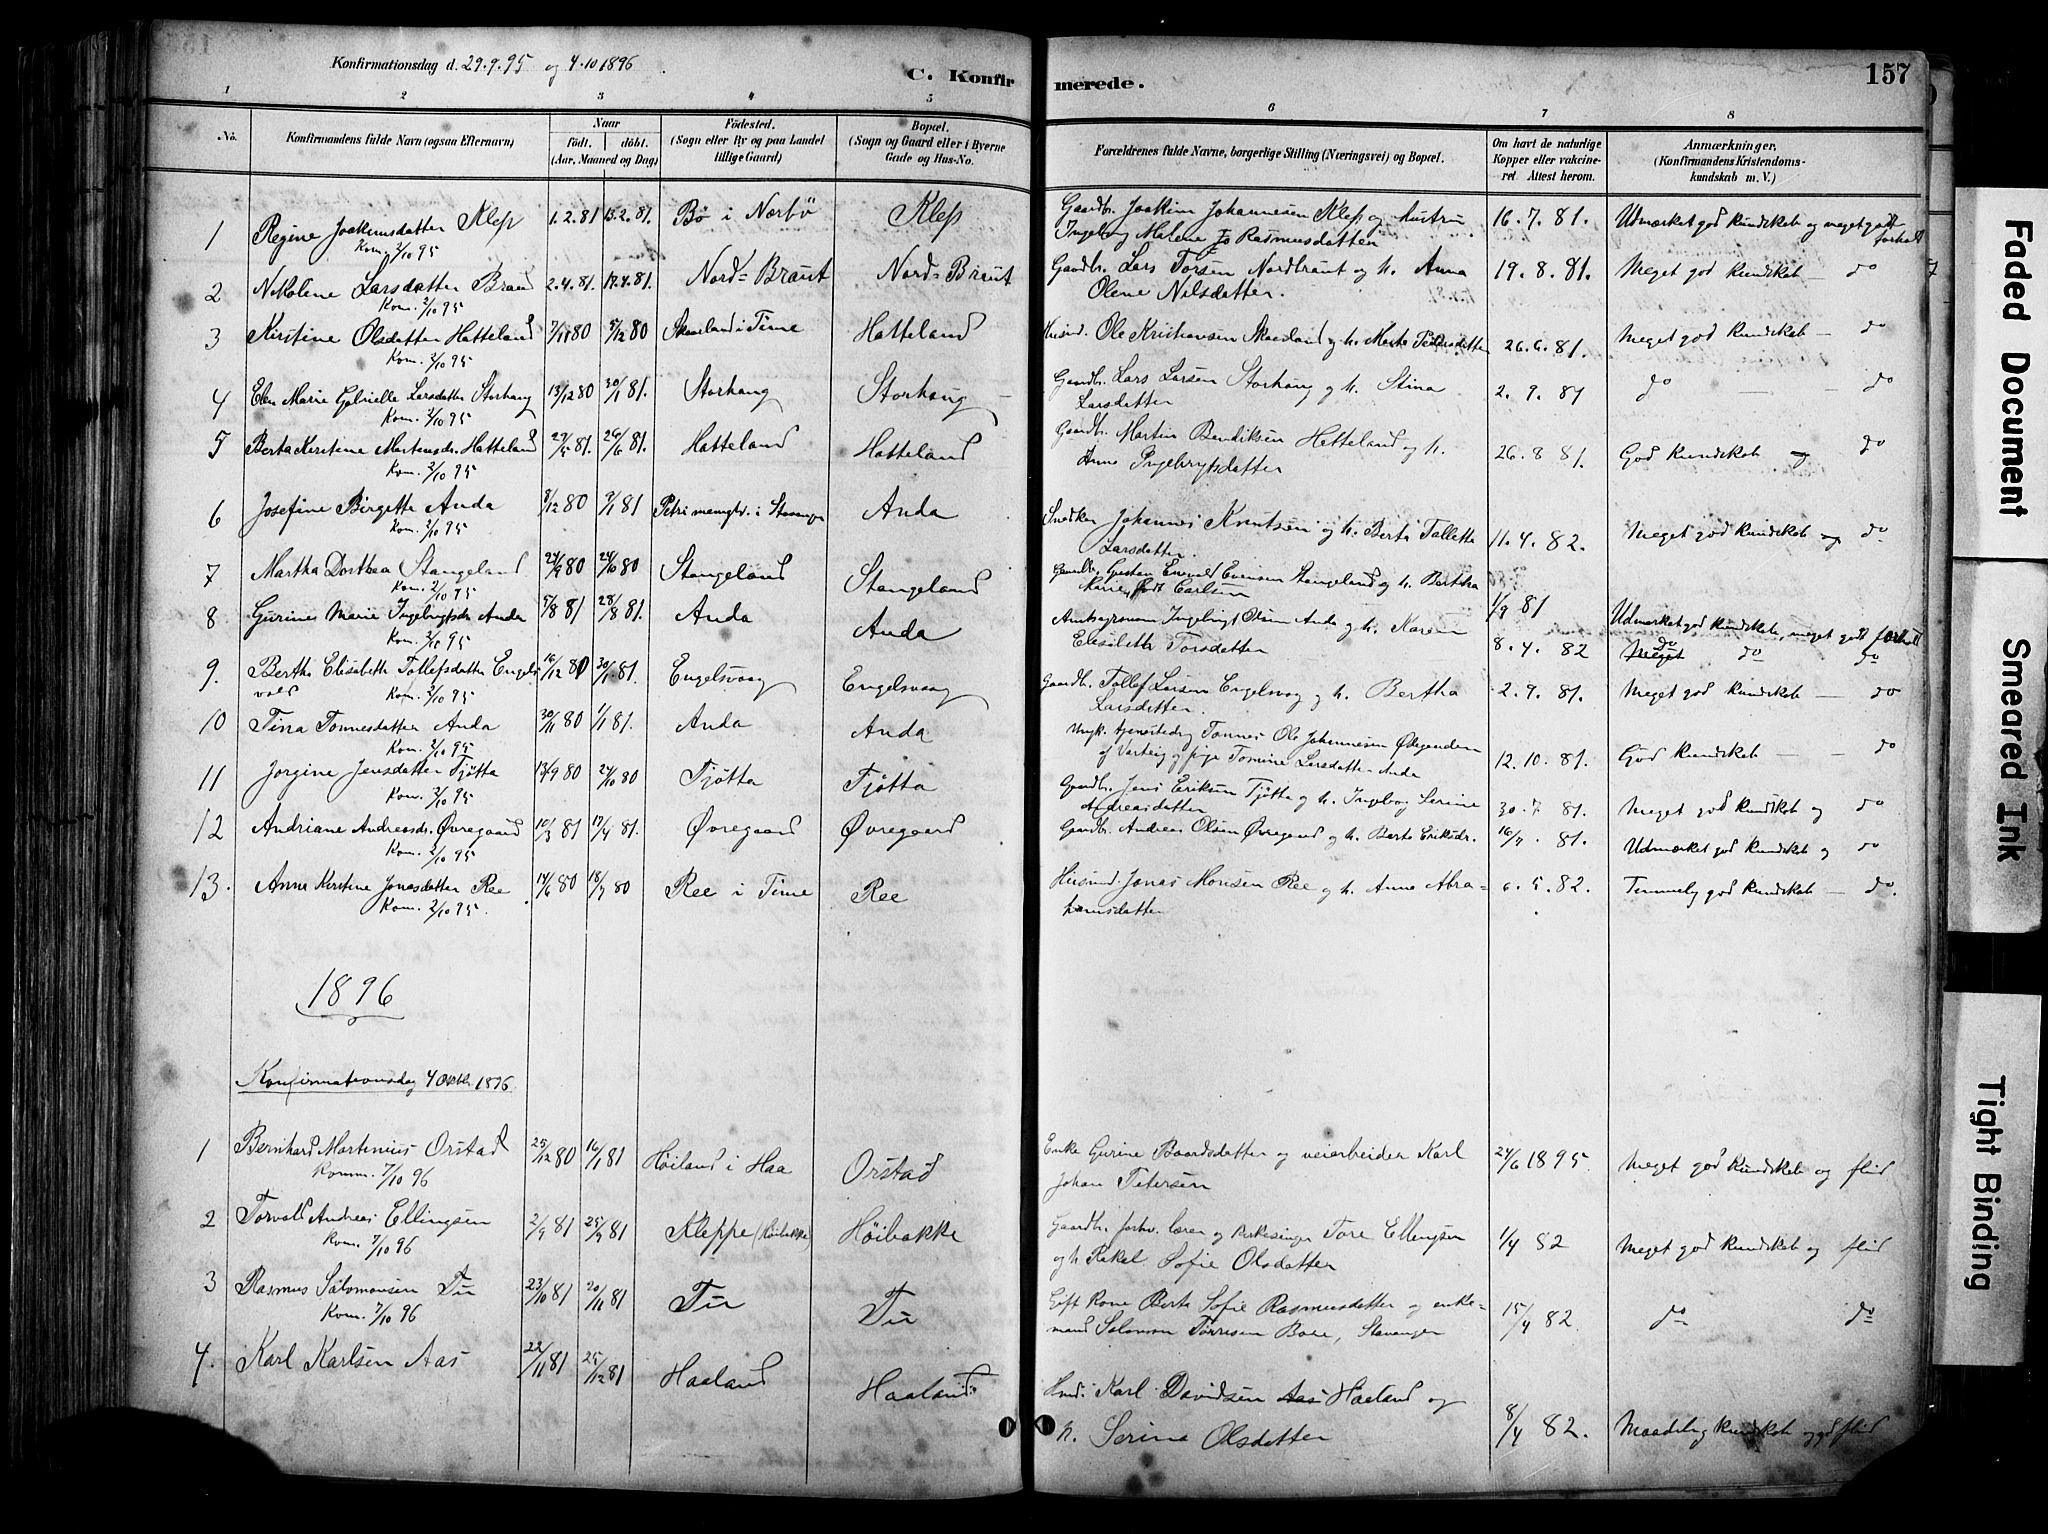 Konfirmationsdag d. 29.9.95 og 4.10 1896
C. Konfirmerede.
157
1 2 3 4 5 6 7 8
No.
Konfirmandens fulde Navn (ogsaa Efternavn)
Naar
født. døbt.
(Aar, Maaned og Dag)
Fødested.
(Sogn eller By og paa Landet
tillige Gaard)
Bopæl.
(Sogn og Gaard eller i Byerne
Gade og Hus-No.
Forældrenes fulde Navne, borgerlige Stilling (Næringsvei) og Bopæl.
Om havt de naturlige
Kopper eller vakcineret
Attest herom.
Anmærkninger,
(Konfirmandens Kristendomskundskab
m. V.)
1 Regine Joakimsdatter Klep 1.2.81 13.2.81. Bø i Nærbø Klep Gaardbr. Joakim Johannesen Klep og Hustru 16.7.81. Udmærket god kundskab og meget godt forhold
Kom. 2/10 95 Ingeborg Malene Rasmusdatter
2 Nikoline Larsdatter Braud 2.4.81. 17.4.81. Nord-Braut Nord-Braut Gaardbr. Lars Torsen Nordbraut og h. Anna 19.8.81. Meget god kundskab — do
Kom. 2/10 95 Olene Nilsdatter.
3 Kirstine Olsdatter Hatteland 7/11 80 5/12 80 Skaarland i Time Hatteland Husmd. Ole Kristiansen Skaarland og h. Marta Pedersdatter 26.6.81. Meget god kundskab — do
Kom. 2/10 95
4 Elen Marie Gabrielle Larsdatter Storhaug 13/12 80 30/1 81. Storhaug Storhaug Gaardbr. Lars Larsen Storhaug og h. Stina 2.9.81 do — do
Kom. 2/10 95 Larsdatter
5 Berta Kirstine Martinsdr. Hatteland 29/5 81. 26/6 81. Hatteland Hatteland Gaardbr. Martin Bendiksen Hatteland og h. 26.8 81. God kundskab og do
Kom. 2/10 95 Anna Ingebrigtsdatter
6 Josefine Birgitte Anda 8/12 80 9/1 81 Petri menighed i Stavanger Anda Snedker Johannes Knutsen og h. Berta Tallette 11.4.82. Meget god kundskab og do
Kom. 2/10 95 Larsdatter.
7 Martha Dorthea Stangeland 24/9 80 24/10 80 Stangeland Stangeland Gustav Enevald Evensen Stangeland og h. Bertha 1/9 81 Udmærket god kundskab, meget godt forhold
Kom. 2/10 95 Karine født Carlsen
8 Gurine Marie Ingebrigtsdr. Anda 5/8 81 28/8 81. Anda Anda Amtsagronom Ingebrigt Olsen Anda og h. Karen 8.4.82 do do do
Kom. 2/10 95 Elisabeth Torsdatter
9. Bertha Elisabeth Tollefsdatter Engelsvold 16/12 80 30/1 81. Engelsvaag Engelsvaag Gaardbr. Tollef Larsen Engelsvaag og h. Bertha 2.9.81. Meget god kundskab — do
Kom. 2/10 95 Larsdatter.
10 Tina Tonnesdatter Anda 30/11 80 1/1 81. Anda Anda Ungk. tjenestedreng Tonnes Ole Johannesen Ødegaarden 12.10.81. God kundskab — do
Kom. 2/10 95 af Varteig og pige Tomine Larsdatter Anda
11 Jorgine Jensdatter Tjøtta 13/9 80 24/10 80 Tjøtta Tjøtta Gaardbr. Jens Eriksen Tjøtta og h. Ingeborg Serine 30.7 81. Meget god kundskab og do
Kom. 2/10 95 Andreasdatter
12 Andriane Andreasdr. Øvregaard 10/3 81 17/4 81. Øvregaard Øvregaard Gaardbr. Andreas Olsen Øvregaard og h. Berta Eriksdr. 16/7 81. Udmærket god kundskab og do
Kom. 2/10 95
13. Anne Kirstine Jonasdatter Ree 14/6 80 18/7 80 Ree i Time Ree Husmd. Jonas Monsen Ree og h. Anne Abra- 6.5.82. Temmelig god kundskab — do.
Kom. 2/10 95. hamsdatter
1896
Konfirmationsdag 4 Oktbr. 1896
1 Bernhard Martinius Orstad 25/12 80 16/1 81 Høiland i Haa Orstad Enke Gurine Baardsdatter og veiarbeider Karl 24/6 1895. Meget god kundskab og flid
Komm. 7/10 96 Johan Petersen
2 Torvald Andreas Ellingsen 2/9 81 25/9 81 Kleppe (Høibakke) Høibakke Gaardbr. forhv. lærer og kirkesanger Tore Ellingsen 1/4 82 Meget god kundskab og flid
Kom. 7/10 96 og h Rakel Sofie Olsdatter
3 Rasmus Salomonsen Tu 23/10 81 20/11 81 Tu Tu Gift kone Berta Sofie Rasmusdatter og enke- 15/4 82 do do
Kom. 7/10 96 mand Salomon Tørresen Bore, Stavanger
4. Karl Karlsen Aas 22/11 81 25/12 81 Haaland Haaland Husmd. Karl Davidsen Aas Haaland og 8/4 82. Maadelig kundskab og god flid
h. Serina Olsdatter
Faded Document
Smeared Ink
Tight Binding